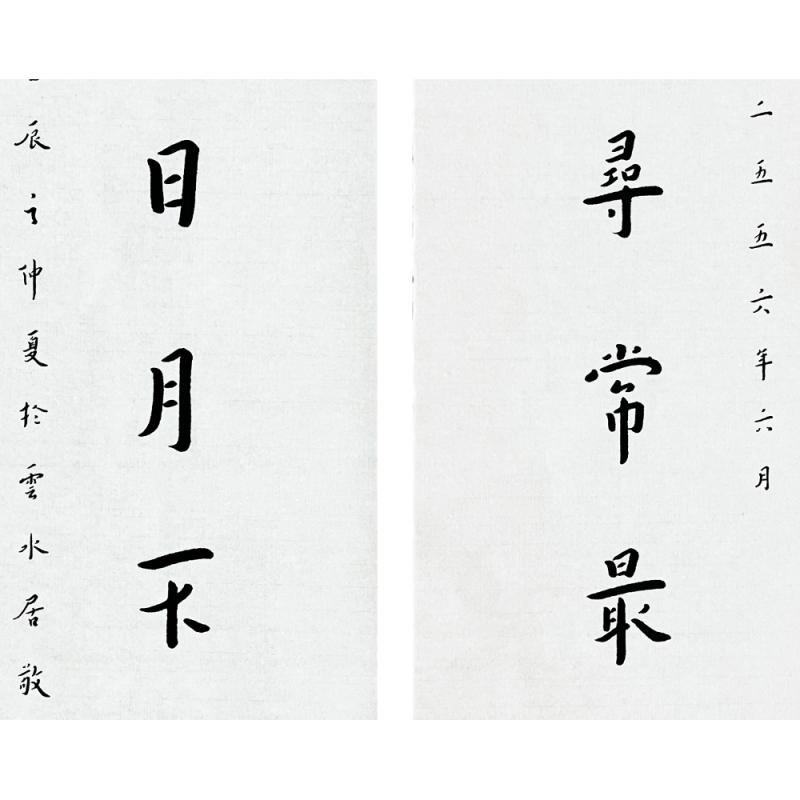 二五五六年六月
尋常最
日月不
辰之仲夏於雲水居敬